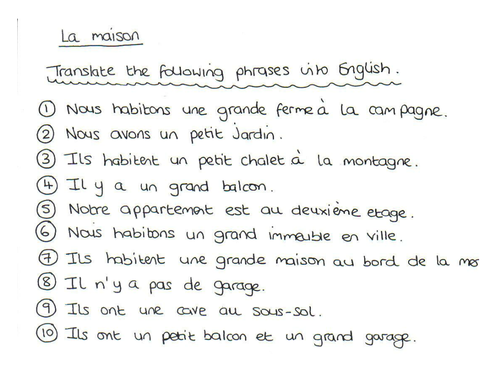 La maison
Translate the following phrases into English.
① Nous habitons une grande ferme à la campagne.
② Nous avons un petit jardin.
③ Ils habitent un petit chalet à la montagne.
④ Il y a un grand balcon.
⑤ Notre appartement est au deuxième etage.
⑥ Nous habitons un grand immeuble en ville.
⑦ Ils habitent une grande maison au bord de la mer
⑧ Il n'y a pas de garage.
⑨ Ils ont une cave au sous-sol.
⑩ Ils ont un petit balcon et un grand garage.